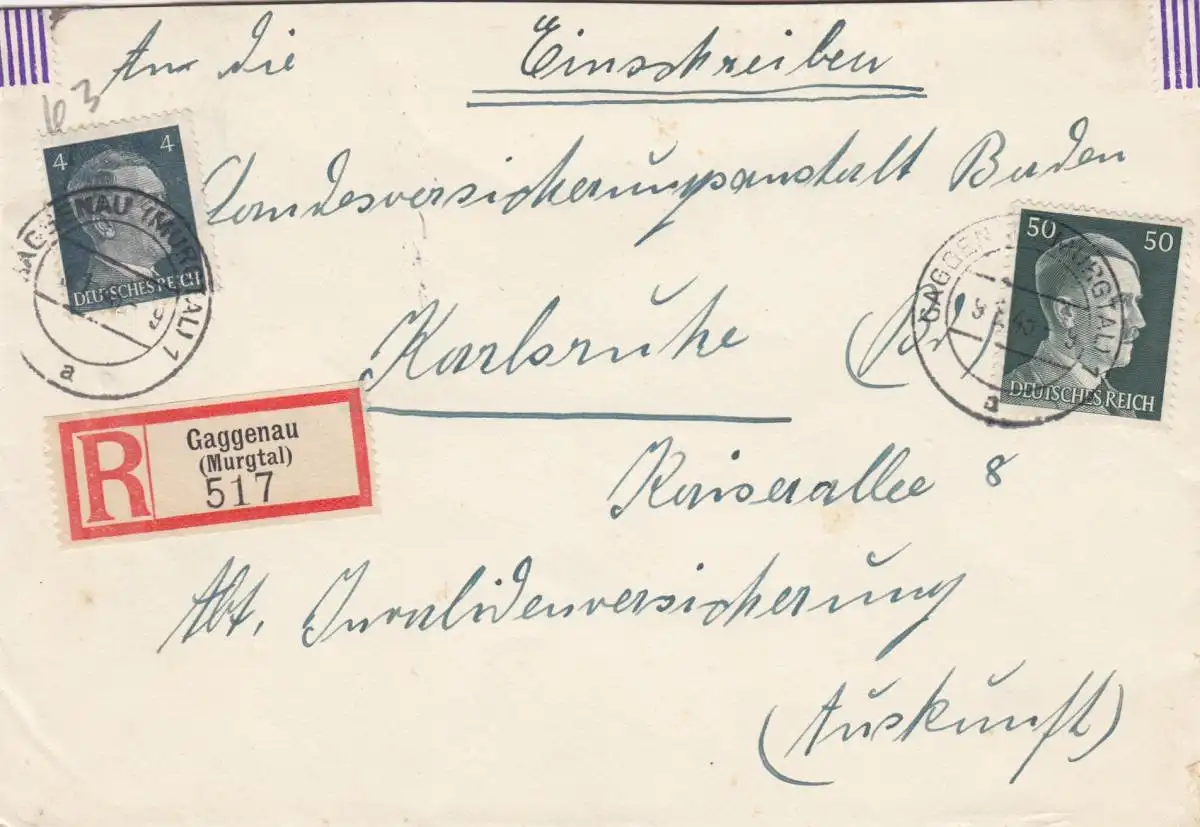 An die Einschreiben
63
4 4
DEUTSCHES REICH
GAGGENAU (MURGTAL) 1
a
Landesversicherungsanstalt Baden
50 50
DEUTSCHES REICH
GAGGENAU (MURGTAL) 1
a
Karlsruhe
R Gaggenau
(Murgtal)
517
Kaiserallee 8
Abt. Invalidenversicherung
(Auskunft)